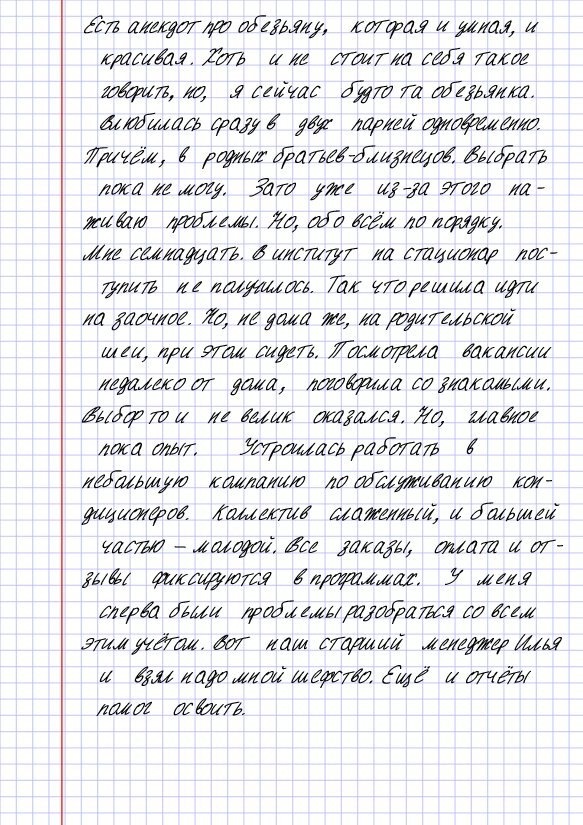 Есть анекдот про обезьяну, которая и умная, и
красивая. Хоть и не стоит на себя такое
говорить, но, я сейчас будто та обезьянка.
Влюбилась сразу в двух парней одновременно.
Причём, в родных братьев-близнецов. Выбрать
пока не могу. Зато уже из-за этого на-
живаю проблемы. Но, обо всём по порядку.
Мне семнадцать. В институт на стационар пос-
тупить не получилось. Так что решила идти
на заочное. Но, не дома же, на родительской
шеи, при этом сидеть. Посмотрела вакансии
недалеко от дома, поговорила со знакомыми.
Выбор то и не велик оказался. Но, главное
пока опыт. Устроилась работать в
небольшую компанию по обслуживанию кон-
диционеров. Коллектив слаженный, и большей
частью – молодой. Все заказы, оплата и от-
зывы фиксируются в программах. У меня
сперва были проблемы разобраться со всем
этим учётом. Вот наш старший менеджер Илья
и взял надо мной шефство. Ещё и отчёты
помог освоить.